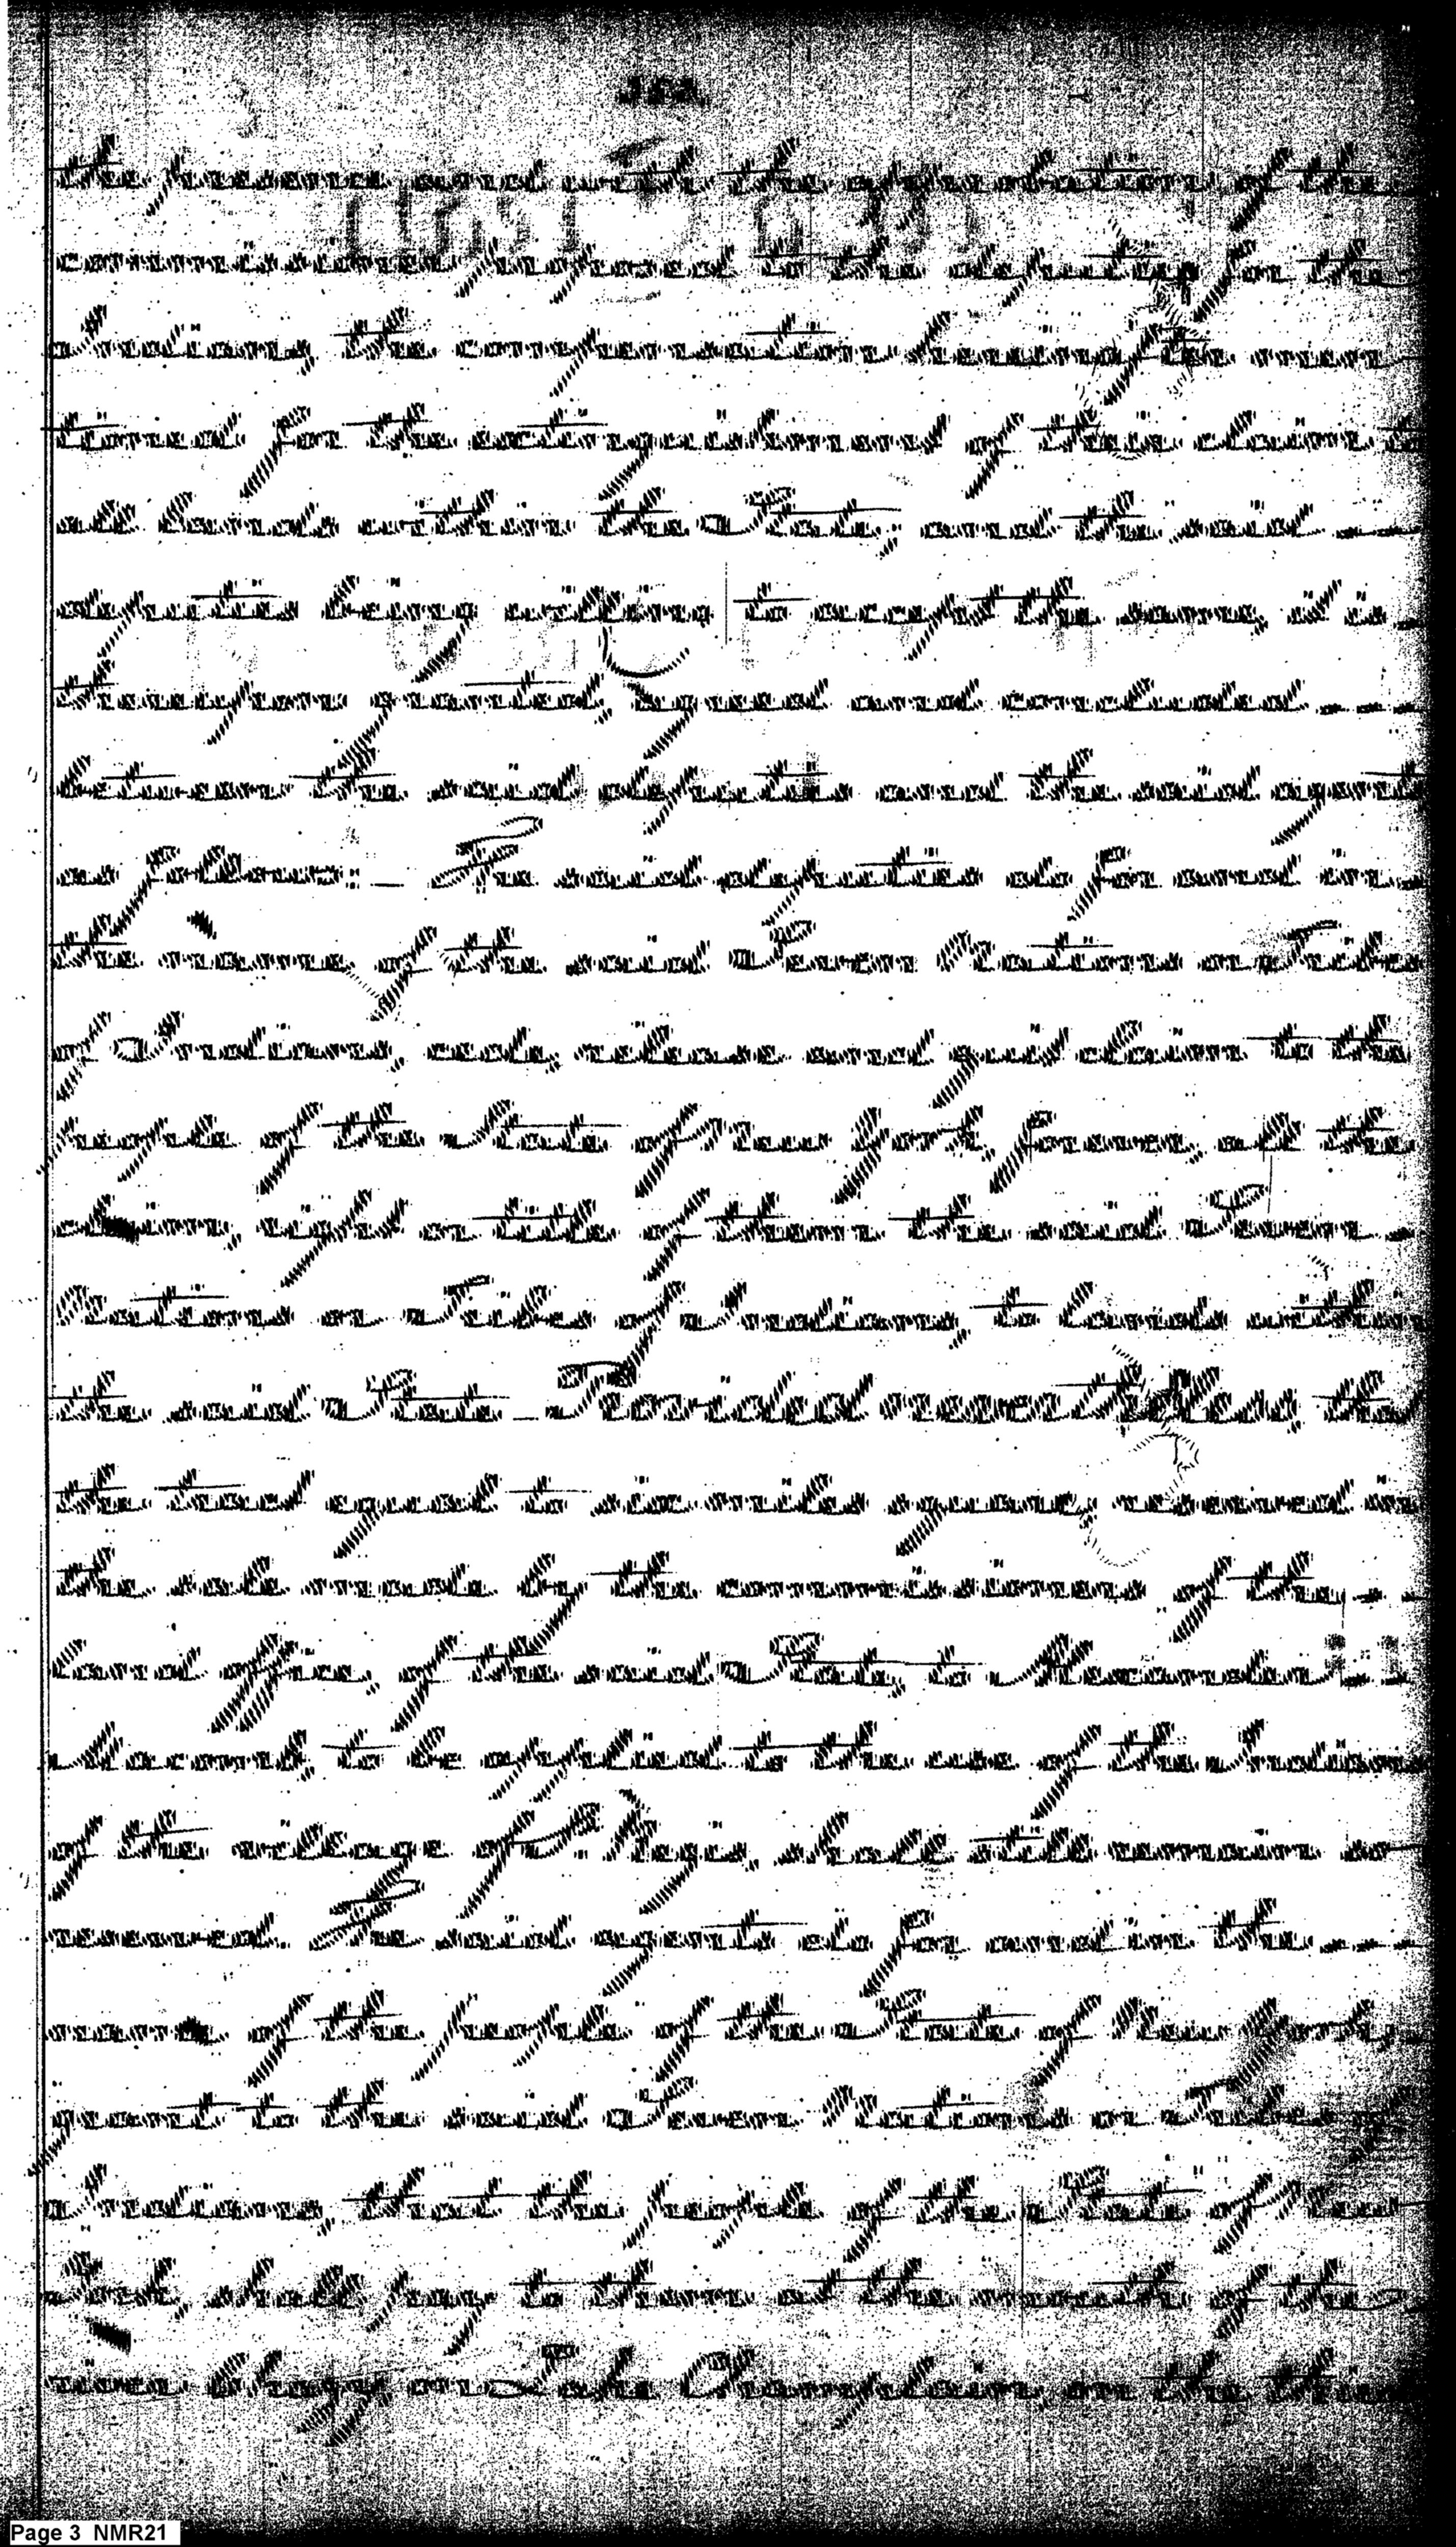 the presence and with the approbation of the
commissioners, proposed to the deputies for the
Indians, the compensation hereinafter men-
tioned for the extinguishment of their claim to
all lands within the State; and the said
deputies being willing to accept the same, it is
thereupon granted, agreed and concluded
between the said deputies and the said agents
as follows: The said deputies do for and in
the name of the said Seven Nations or Tribes
of Indians, cede, release and quit claim to the
people of the State of New York, forever, all the
claim, right or title of them the said Seven
Nations or Tribes of Indians, to lands within
the said State - Provided nevertheless, that
the tract equal to six miles square, reserved in
the sale made by the commissioners of the
land office, of the said State, to Alexander
Macomb, to be applied to the use of the Indians
of the village of St. Regis, shall still remain so
reserved. The said agents do for and in the
name of the people of the State of New York,
grant to the said Seven Nations or Tribes of
Indians, that the people of the State of New
York, shall pay to them at the mouth of the
river Chazy on Lake Champlain, on the third
Page 3 NMR21